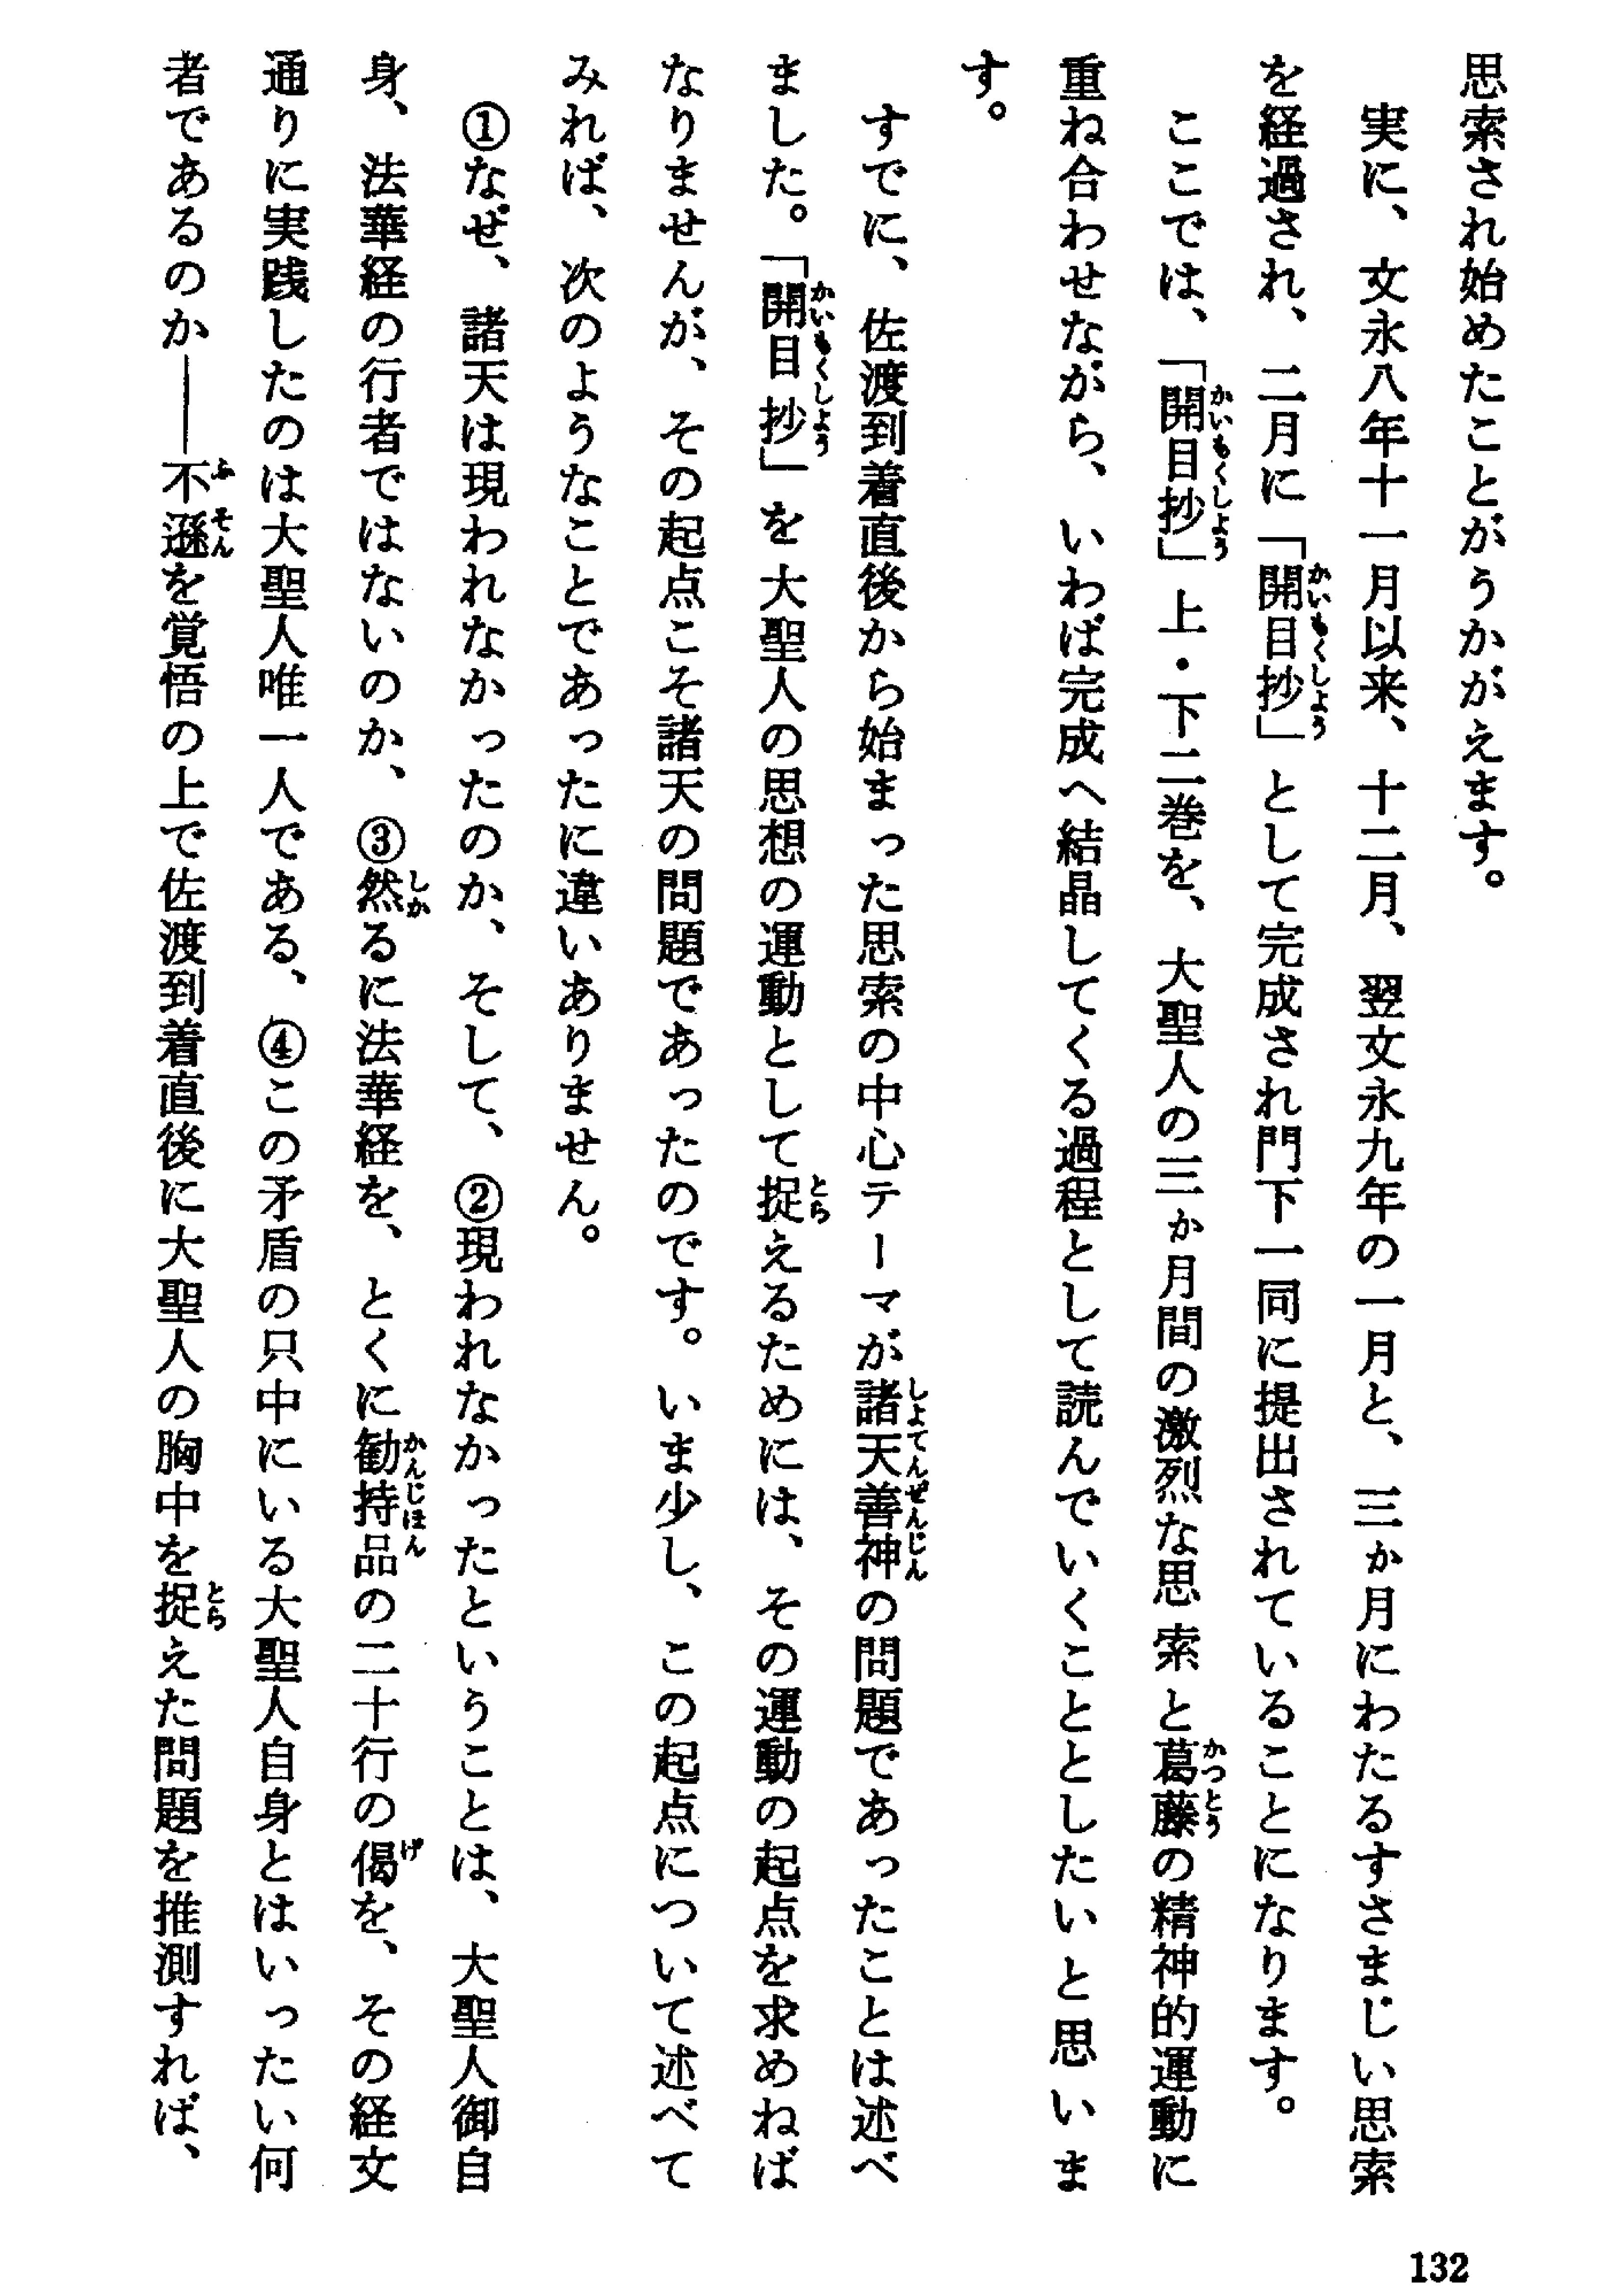 思索され始めたことがうかがえます。
　実に、文永八年十一月以来、十二月、翌文永九年の一月と、三か月にわたるすさまじい思索
を経過され、二月に「開目抄」として完成され門下一同に提出されていることになります。
　ここでは、「開目抄」上・下二巻を、大聖人の三か月間の激烈な思索と葛藤の精神的運動に
重ね合わせながら、いわば完成へ結晶してくる過程として読んでいくこととしたいと思いま
す。
　すでに、佐渡到着直後から始まった思索の中心テーマが諸天善神の問題であったことは述べ
ました。「開目抄」を大聖人の思想の運動として捉えるためには、その運動の起点を求めねば
なりませんが、その起点こそ諸天の問題であったのです。いま少し、この起点について述べて
みれば、次のようなことであったに違いありません。
　①なぜ、諸天は現われなかったのか、そして、②現われなかったということは、大聖人御自
身、法華経の行者ではないのか、③然るに法華経を、とくに勧持品の二十行の偈を、その経文
通りに実践したのは大聖人唯一人である、④この矛盾の只中にいる大聖人自身とはいったい何
者であるのか――不遜を覚悟の上で佐渡到着直後に大聖人の胸中を捉えた問題を推測すれば、
132